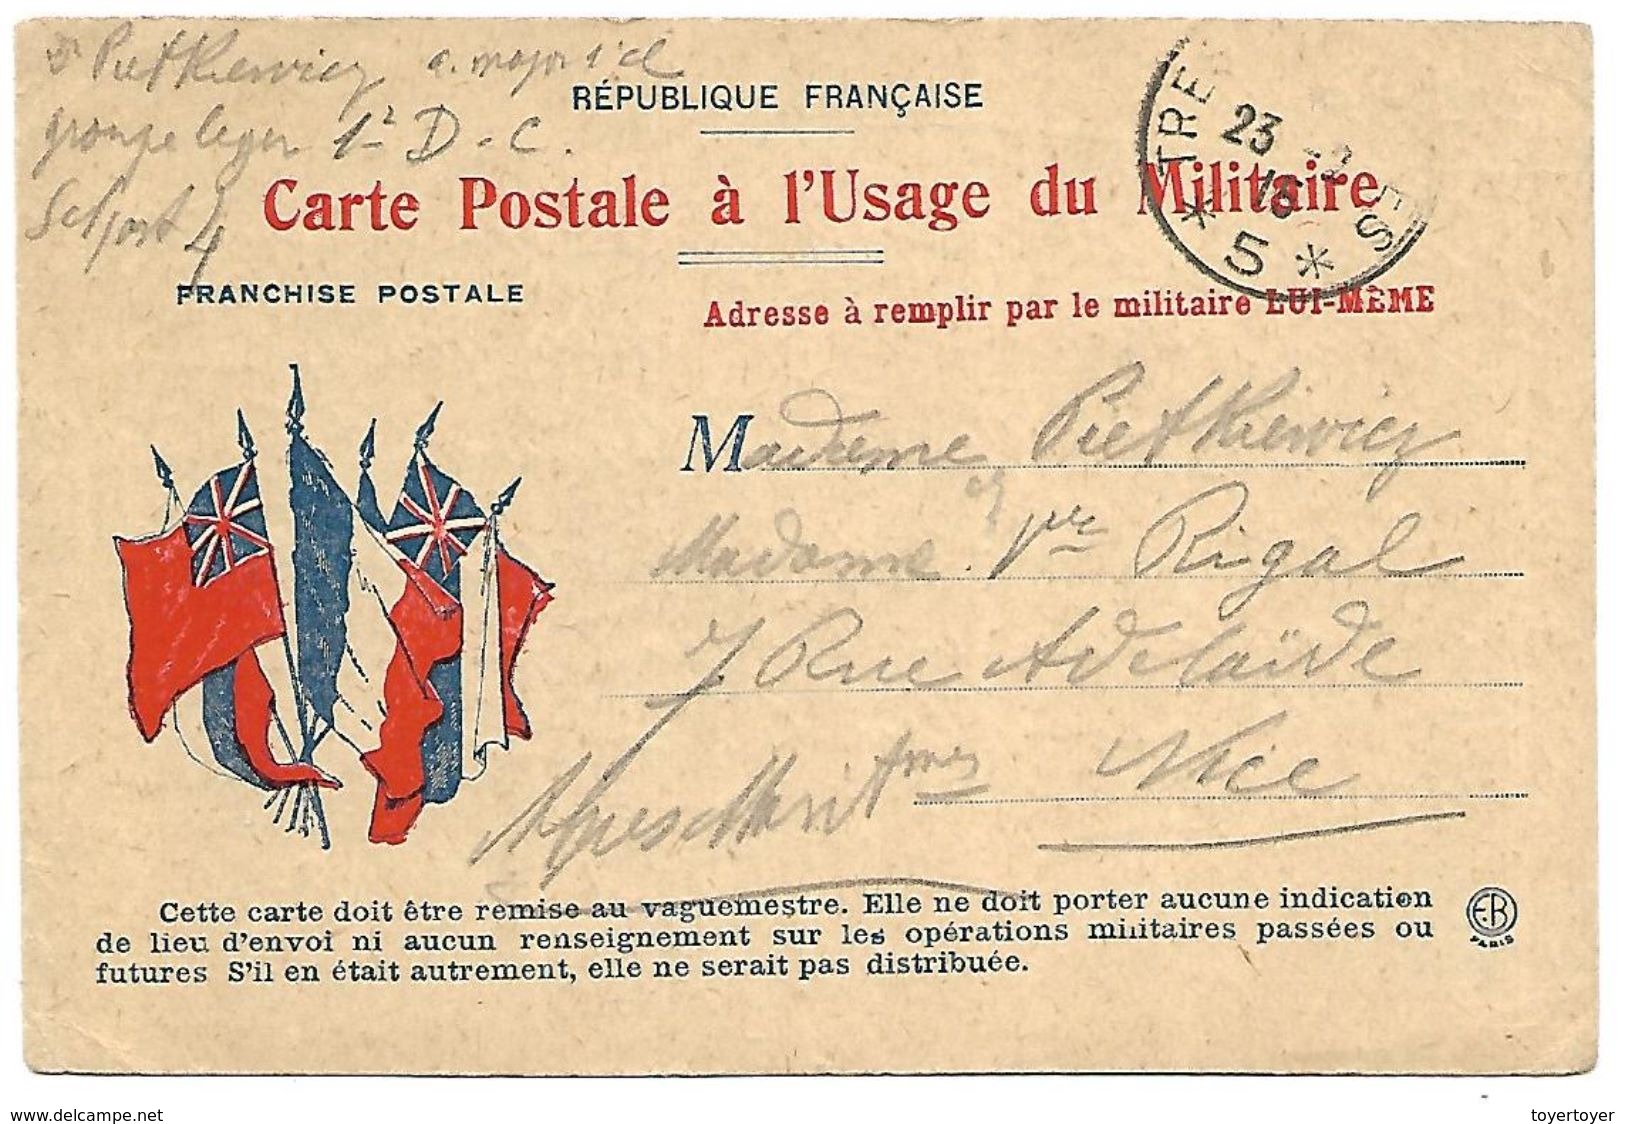 Dr Pietkiewicz a. major 1e cl
groupe léger 1e D. C.
Sect post 4
RÉPUBLIQUE FRANÇAISE
Carte Postale à l'Usage du Militaire
TRE
23 -2
15
* 5 *
ES
FRANCHISE POSTALE
Adresse à remplir par le militaire LUI-MÊME
Madame Pietkiewicz
et
Madame Vve Rigal
7 Rue Adelaïde
Alpes Maritmes Nice
Cette carte doit être remise au vaguemestre. Elle ne doit porter aucune indication
de lieu d'envoi ni aucun renseignement sur les opérations militaires passées ou
futures S'il en était autrement, elle ne serait pas distribuée.
E.R
PARIS
www.delcampe.net
toyertoyer